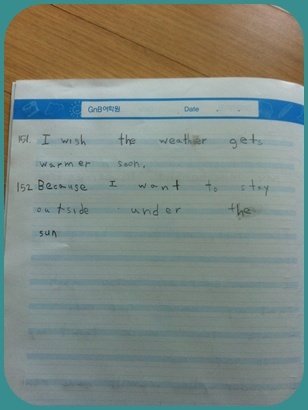 GnB어학원 Date . .
151. I wish the weather gets
warmer soon.
152 Because I want to stay
outside undor the
sun